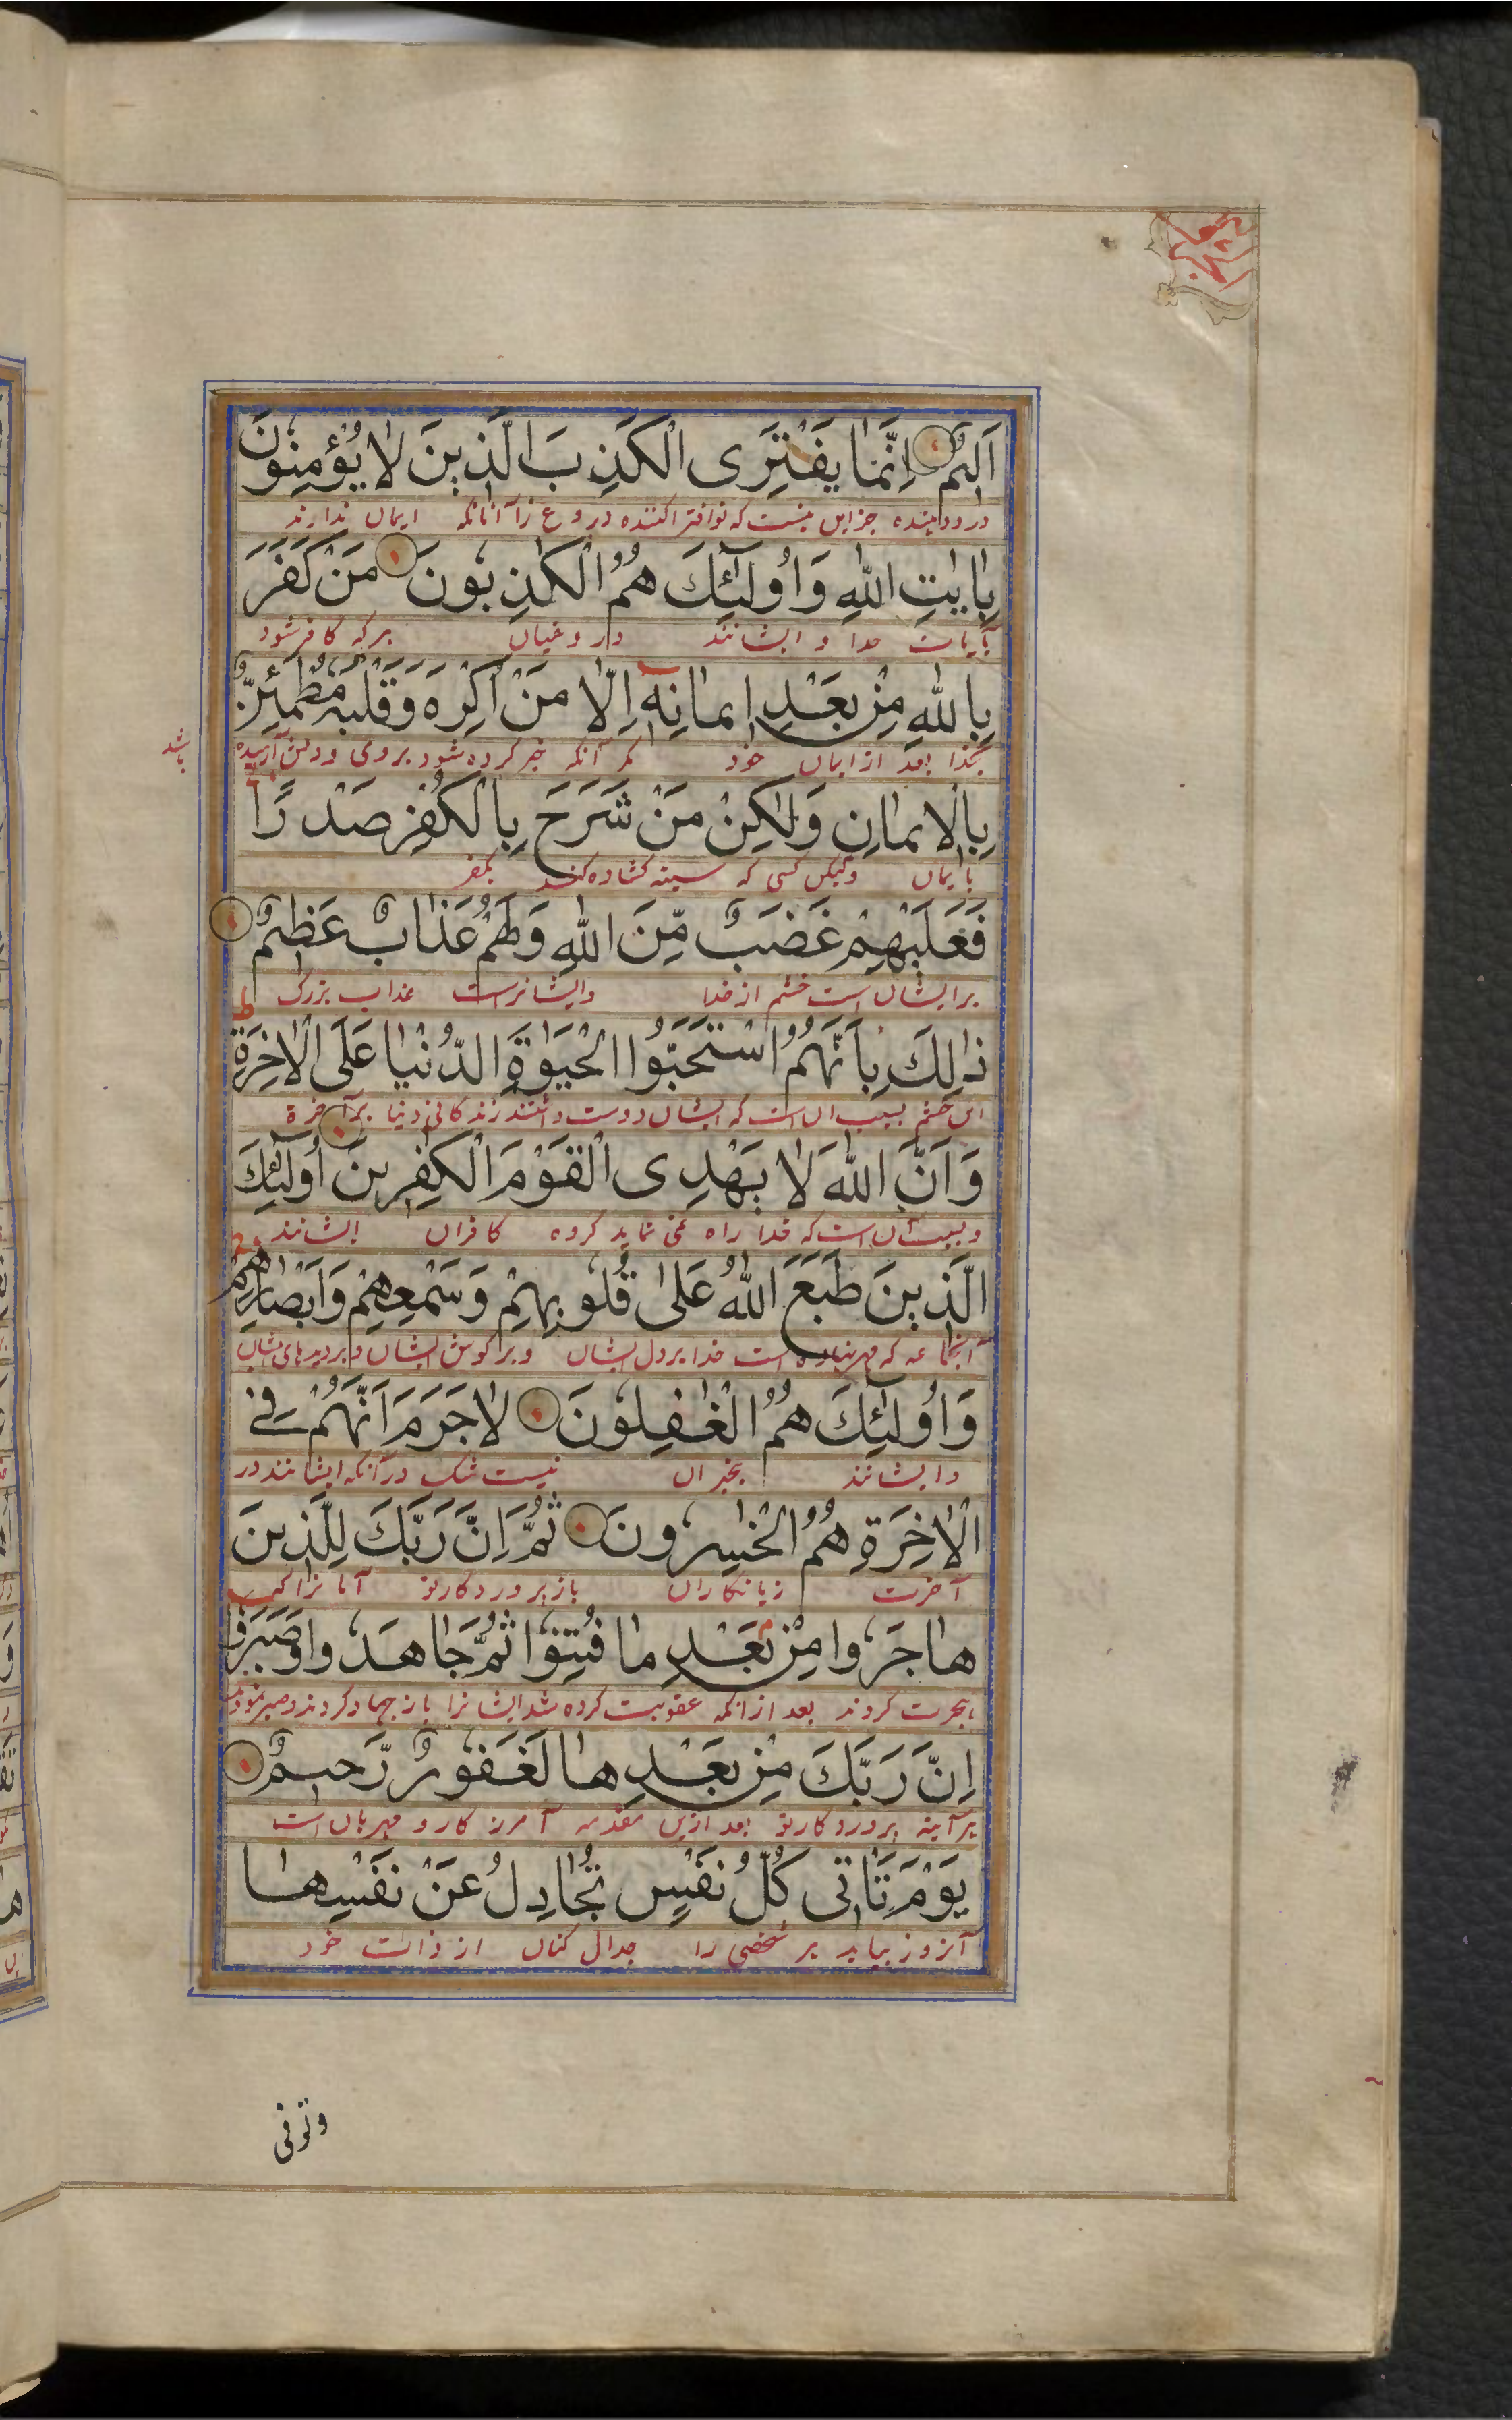 اَلیمٌ اِنَّمٰا یَفْتَرِی الْکَذِبَ الَّذینَ لٰا یُؤْمِنُونَ
دردودهنده جز این نیست که نو افترا کننده دروغ را آنانکه ایمان ندارند
بِاٰیٰاتِ اللّٰهِ وَاُولٰٓئِكَ هُمُ الْکٰذِبُونَ مَنْ کَفَرَ
بآیات خدا و ایشانند دروغیان هر که کافر شود
بِاللّٰهِ مِنْ بَعْدِ ایمٰانِهٖٓ اِلّٰا مَنْ اُکْرِهَ وَقَلْبُهُ مُطْمَئِنٌّ
بخدا بعد از ایمان خود مگر آنکه جبر کرده شود بر وی و دلش آرمیده
باشد
بِالْاٖیمٰانِ وَلٰکِنْ مَنْ شَرَحَ بِالْکُفْرِ صَدْرًا
با ایمان ولیکن کسی که سینه کشاده کند بکفر
فَعَلَیْهِمْ غَضَبٌ مِّنَ اللّٰهِ وَلَهُمْ عَذٰابٌ عَظیمٌ
بر ایشان است خشم از خدا و ایشانراست عذاب بزرگ
ذٰلِكَ بِاَنَّهُمُ اسْتَحَبُّوا الْحَیٰوةَ الدُّنْیٰا عَلَی الْاٰخِرَةِ
این خشم بسبب آن است که ایشان دوست داشتند زندکانی دنیا بر آخرة
وَاَنَّ اللّٰهَ لٰا یَهْدِی الْقَوْمَ الْکٰفِرینَ اُولٰٓئِكَ
و بسبب آن است که خدا راه نمی نماید کروه کافران ایشانند
الَّذینَ طَبَعَ اللّٰهُ عَلیٰ قُلُوبِهِمْ وَسَمْعِهِمْ وَاَبْصٰارِهِمْ
آنجماعه که مهر نهاده است خدا بر دل ایشان و بر کوش ایشان و بر دیدهای ایشان
وَاُولٰٓئِكَ هُمُ الْغٰفِلُونَ لٰا جَرَمَ اَنَّهُمْ فِی
و ایشانند بیخبران نیست شک در آنکه ایشانند در
الْاٰخِرَةِ هُمُ الْخٰسِرُونَ ثُمَّ اِنَّ رَبَّكَ لِلَّذینَ
آخرت زیانکاران باز پروردکار تو آنانرا که
هٰاجَرُوا مِنْ بَعْدِ مٰا فُتِنُوا ثُمَّ جٰاهَدُوا وَصَبَرُوا
هجرت کردند بعد از آنکه عقوبت کرده شد ایشانرا باز جهاد کردند و صبر نمودند
اِنَّ رَبَّكَ مِنْ بَعْدِهٰا لَغَفُورٌ رَّحیمٌ
هر آینه پروردکار تو بعد ازین مقدمه آمرزکار و مهربان است
یَوْمَ تَاْتی کُلُّ نَفْسٍ تُجٰادِلُ عَنْ نَفْسِهٰا
آنروز بیاید هر شخصی را جدال کنان از ذات خود
وتوفی